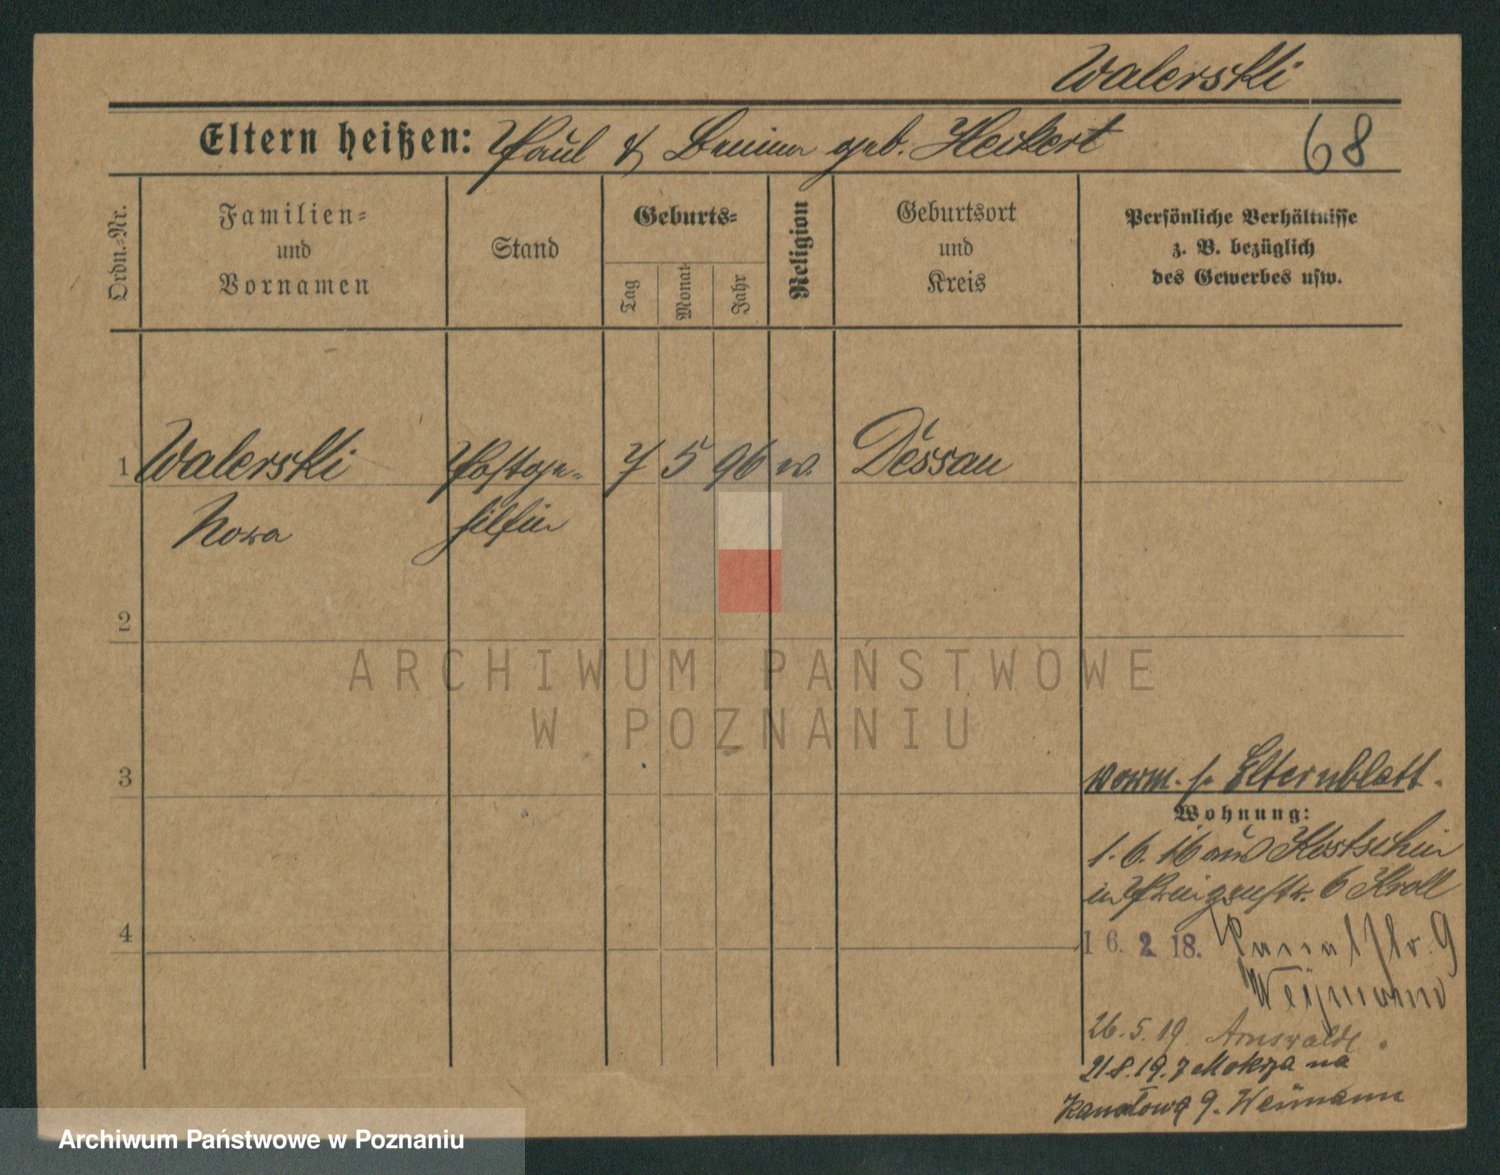 Walerski
Eltern heißen: Paul & geb. Heikert
68
Ordn.-Nr.
Familien-
und
Vornamen
Stand
Geburts-
Tag
Monat
Jahr
Religion
Geburtsort
und
Kreis
Persönliche Verhältnisse
z. B. bezüglich
des Gewerbes usw.
1 Walerski Postge- 7 5 96 w. Dessau
Nora hilfin
2
ARCHIWUM PAŃSTWOWE
W POZNANIU
3
vorm. s. Elternblatt.
Wohnung:
1.6.16 aus Kostschin
in 6 Kroll
4
16. 2. 18. Kanalstr. 9
Weymann
26.5.19 Arnswalde.
21.8.19. z Mokrza na
Kanałową 9. Weimann
Archiwum Państwowe w Poznaniu